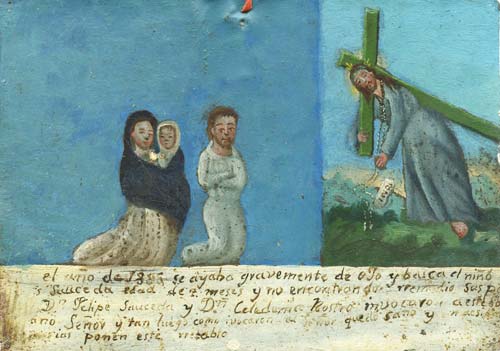 el año de 1885 se ayaba gravemente de ojo y basca el niño
s Sauceda edad de 2 meses y no encontrando rremedio sus p
Dn Felipe Sauceda y Dña Celedonia Castro invocaron a este
ano Señor y tan luego como invocaron al Señor quedo sano y en acsi
grasias ponen este retablo